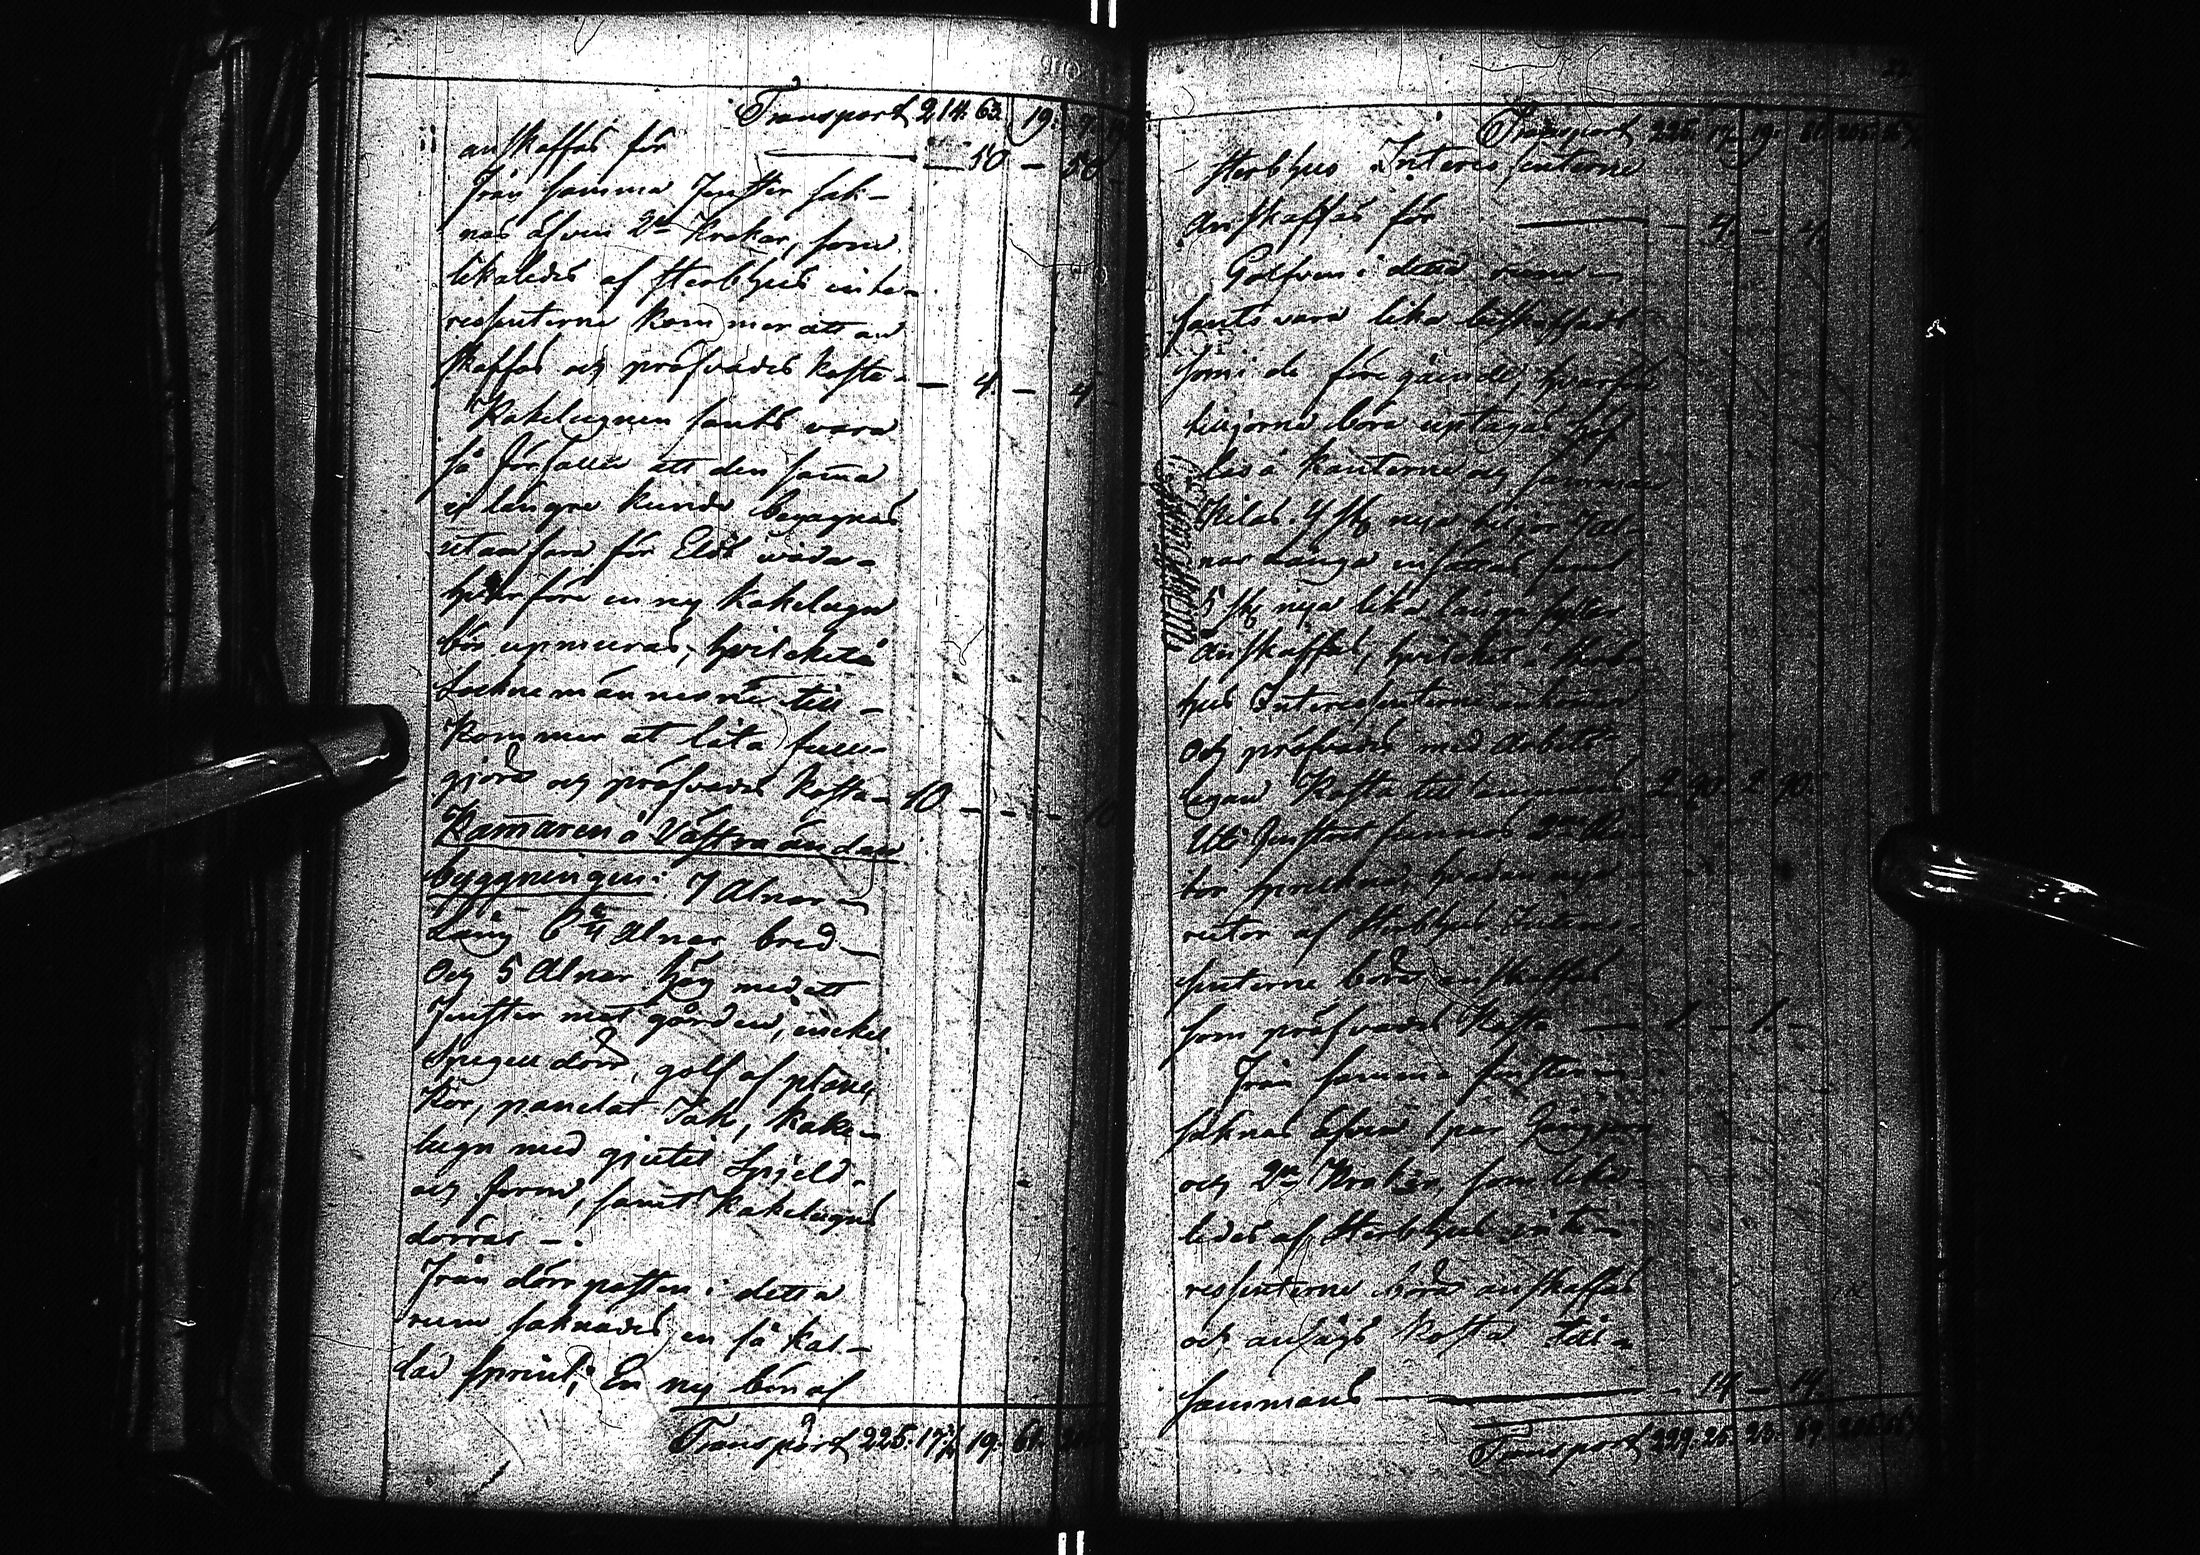 Transport 214. 63. 19. 9.
anskaffas för — 50 — 50
Från samma Fenster sak-
nas äfven 2ne Krokar, som
likaledes af Sterbhus inte-
ressenterne kommer att an
skaffas och pröfvades kosta — 4 — 4
Kakelugnen fants vara
så förfallen att den sama
ej längre kunde begagnas
utan fara för Elds våda-
hvarföre en ny kakelugn
bör upmuras, hvilcket
Sockne männerne till-
kommer at låta full-
gjöra och pröfvades kosta — 10 — — 10
Kamaren å Västra ändan
byggningen: 7 Alnar
Lång 6 Alnar bred
och 5 Alnar hög med ett
Fenster mot gården, enckel
Spegel dörr, golf af plan-
kor, panelat Tak, kake-
lugn med gjutet Spjeld
och form, samt kakelugns
dörrar —.
Från dörrposten i detta
rum saknades en så kal-
lad sprint; En ny bör af
Transport 225. 17 19. 61.
Transport 225. 17 19. 61.
Sterbhus Interessenterne
anskaffas för — 4 — 4.
Golfven i detta rum
fants vara lika beskaffadt
som i de föregående, hvarföre
tiljorne böra uptagas
les å kanterne och samman
Kilas. 4 st nya tiljor
nar långa insättas samt
5 st nya lika långa
anskaffas, hvilcket å Sterb-
hus Interessenterne ankomer
och pröfvades med Arbets-
legan Kosta tilsammans 2. 90. 2. 90.
Uti Fenstret funnos 2ne Ru-
tor spruckna, hvadan nya
rutor af Sterbhus Interes-
senterne böra anskaffas
som pröfvades Kosta —
Från samma fenster
saknas äfven 1 par
och 2ne Krokar, som lika-
ledes af Sterbhus inte-
ressenterne böra anskaffas
och ansågs Kosta till-
sammans — 14 — 14.
Transport 229. 25. 20. 69.